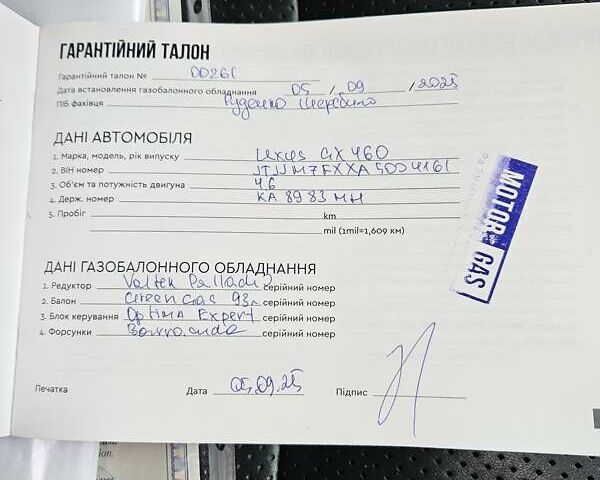 ГАРАНТІЙНИЙ ТАЛОН
Гарантійний талон № 00261
Дата встановлення газобалонного обладнання 05 / 09 / 2025
ПІБ фахівця Руденко
ДАНІ АВТОМОБІЛЯ
1. Марка, модель, рік випуску Lexus GX 460
2. ВІН номер JTJJM7FXXA5004161
3. Об'єм та потужність двигуна 4.6
4. Держ. номер КА 8983 МН
5. Пробіг km
mil (1mil=1,609 км)
MOTOR GAS
ДАНІ ГАЗОБАЛОННОГО ОБЛАДНАННЯ
1. Редуктор Valtek серійний номер
2. Балон Green Gas 93л серійний номер
3. Блок керування Optima Expert серійний номер
4. Форсунки Barracuda серійний номер
Печатка Дата 05.09.25 Підпис